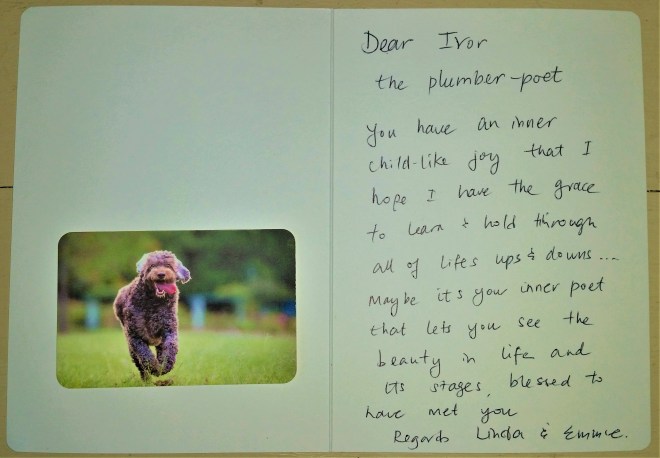 Dear Ivor
the plumber-poet
You have an inner
child-like joy that I
hope I have the grace
to learn & hold through
all of lifes ups & downs...
Maybe it's you inner poet
that lets you see the
beauty in life and
its stages, blessed to
have met you
Regards Linda & Emmie.